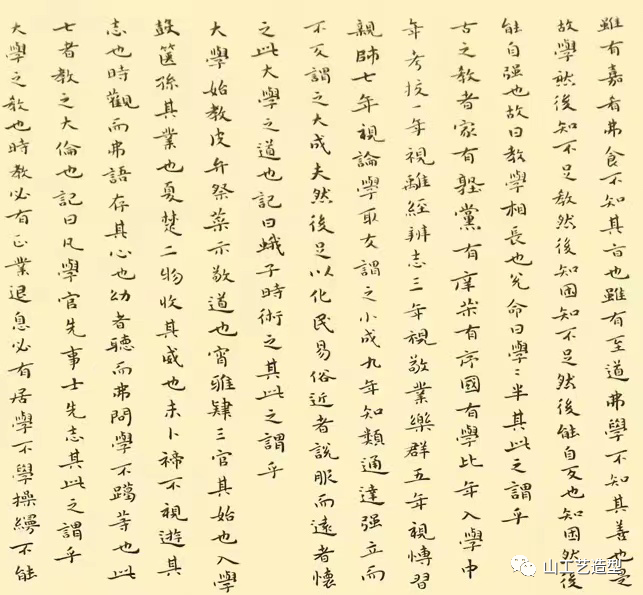 雖有嘉肴弗食不知其旨也雖有至道弗學不知其善也是
故學然後知不足教然後知困知不足然後能自反也知困然後
能自强也故曰教學相長也兌命曰學〻半其此之謂乎
古之教者家有塾黨有庠術有序國有學比年入學中
年考校一年視離經辨志三年視敬業樂群五年視博習
親師七年視論學取友謂之小成九年知類通達强立而
不反謂之大成夫然後足以化民易俗近者說服而遠者懷
之此大學之道也記曰蛾子時術之其此之謂乎
大學始教皮弁祭菜示敬道也宵雅肄三官其始也入學
鼓篋孫其業也夏楚二物收其威也未卜禘不視遊其
志也時觀而弗語存其心也幼者聽而弗問學不躐等也此
七者教之大倫也記曰凡學官先事士先志其此之謂乎
大學之教也時教必有正業退息必有居學不學操縵不能
山工艺造型